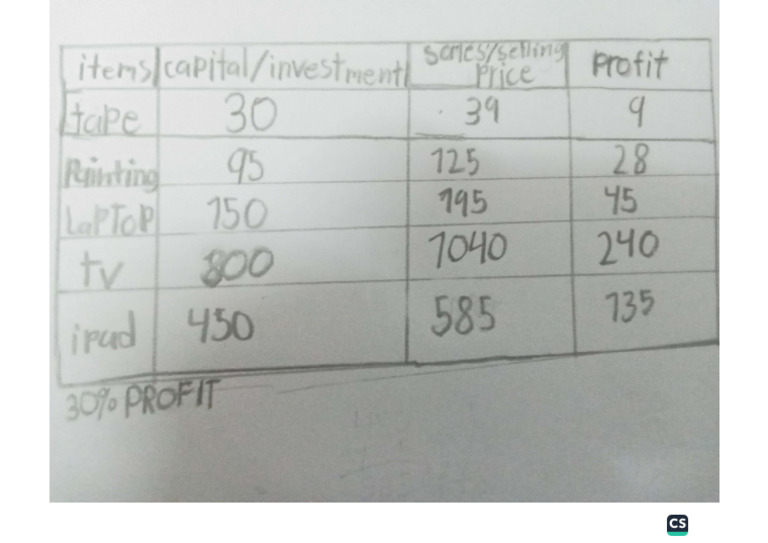 items capital/investment sales/selling price profit
tape 30 39 9
Painting 95 125 28
LapTop 150 195 45
tv 800 1040 240
ipad 450 585 135
30% PROFIT
CS